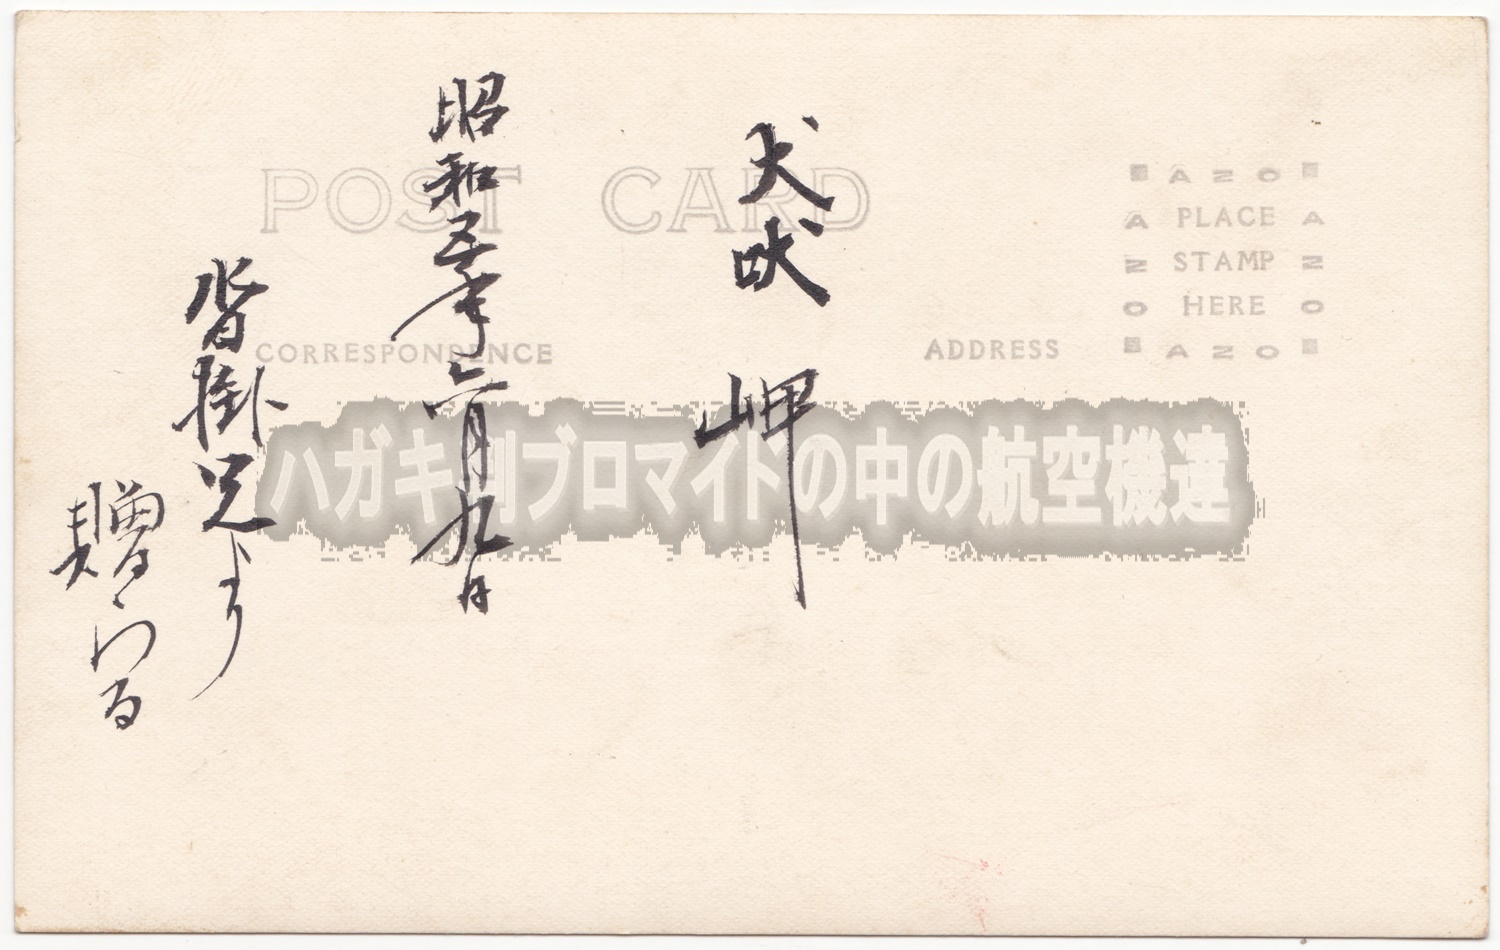 犬吠 岬
昭和五年六月九日
沓掛兄より
贈らる
POST CARD
CORRESPONDENCE
ADDRESS
AZO
PLACE
STAMP
HERE
AZO
AZO
AZO
ハガキ判ブロマイドの中の航空機達